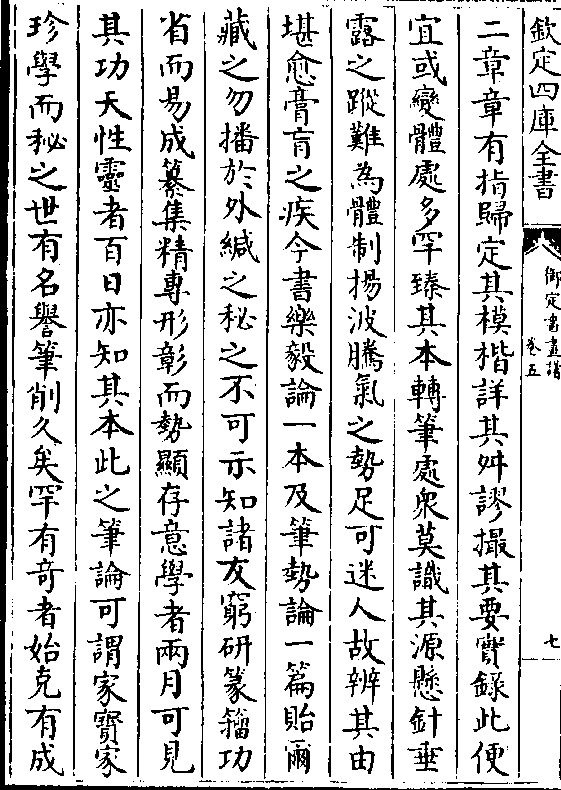 欽定四庫全書
御定書畫譜
卷五
七
二章章有指歸定其模楷詳其舛謬撮其要實録此便
宜或變體處多罕臻其本轉筆處衆莫識其源懸針垂
露之蹤難為體制揚波騰氣之勢足可迷人故辨其由
堪愈膏肓之疾今書樂毅論一本及筆勢論一篇貽爾
藏之勿播於外緘之秘之不可示知諸友窮研篆籀功
省而易成纂集精專形彰而勢顯存意學者兩月可見
其功天性靈者百日亦知其本此之筆論可謂家寳家
珍學而秘之世有名譽筆削久矣罕有竒者始克有成